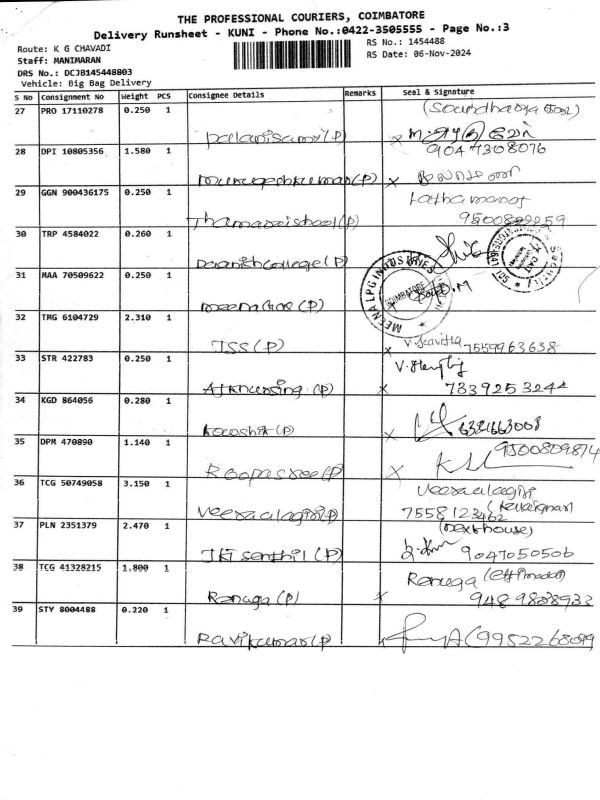 THE PROFESSIONAL COURIERS, COIMBATORE
Delivery Runsheet - KUNI - Phone No.:0422-3505555 - Page No.:3
Route: K G CHAVADI
RS No.: 1454488
Staff: MANIMARAN
RS Date: 06-Nov-2024
DRS No.: DCJB145448803
Vehicle: Big Bag Delivery
S No Consignment No Weight PCS Consignee Details Remarks Seal & Signature
27 PRO 17110278 0.250 1
Palanisamy (P)
28 DPI 10805356 1.580 1
9047308076
Murugeshkumar (P) x
29 GGN 900436175 0.250 1
Latha
Thamaraiselvan (P)
30 TRP 4584022 0.260 1
College (P)
31 MAA 70509622 0.250 1
MEENA LPG INDUSTRIES
COIMBATORE
Meena (P)
32 TMG 6104729 2.310 1
JSS (P) x V. Kavitha 7559963638
33 STR 422783 0.250 1
AJK nursing (P) x 7339253244
34 KGD 864056 0.280 1
Koushik (P) x 6381663008
35 DPM 470890 1.140 1
9500809874
Roopasree (P) x
36 TCG 50749058 3.150 1
Veeraalagiri
Veeraalagiri (P) 7558123462
37 PLN 2351379 2.470 1
(next house)
senthil (P) 9047050506
38 TCG 41328215 1.800 1
Renuga
Renuga (P) x 9489838933
39 STY 8004488 0.220 1
Ravikumar (P) (9952268099